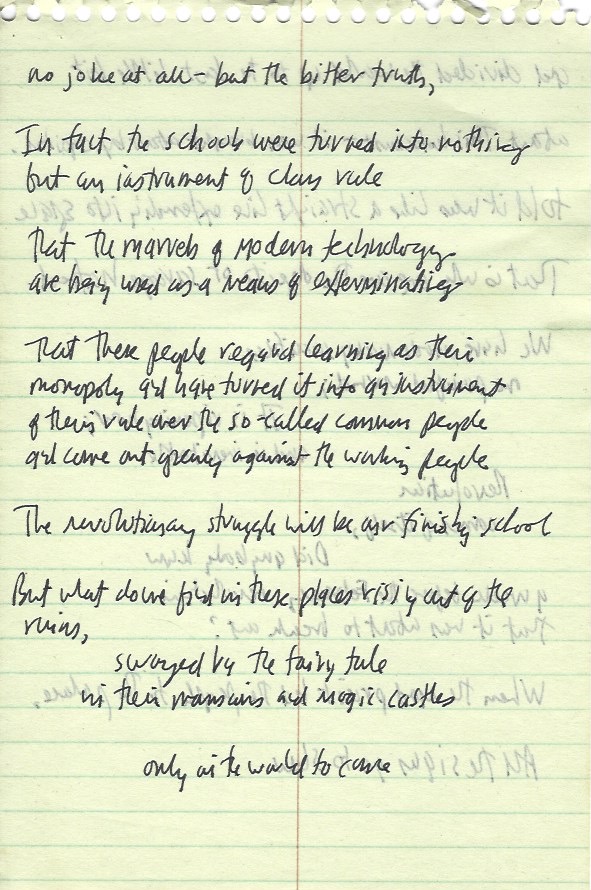 no joke at all – but the bitter truth,
In fact the schools were turned into nothing
but an instrument of class rule
That the marvels of modern technology
are being used as a means of exterminating
That these people regard learning as their
monopoly and have turned it into an instrument
of their rule over the so-called common people
and come out openly against the working people
The revolutionary struggle will be our finishing school
But what do we find in these places rising out of the
ruins,
swayed by the fairy tale
in their mansions and magic castles
only in the world to come